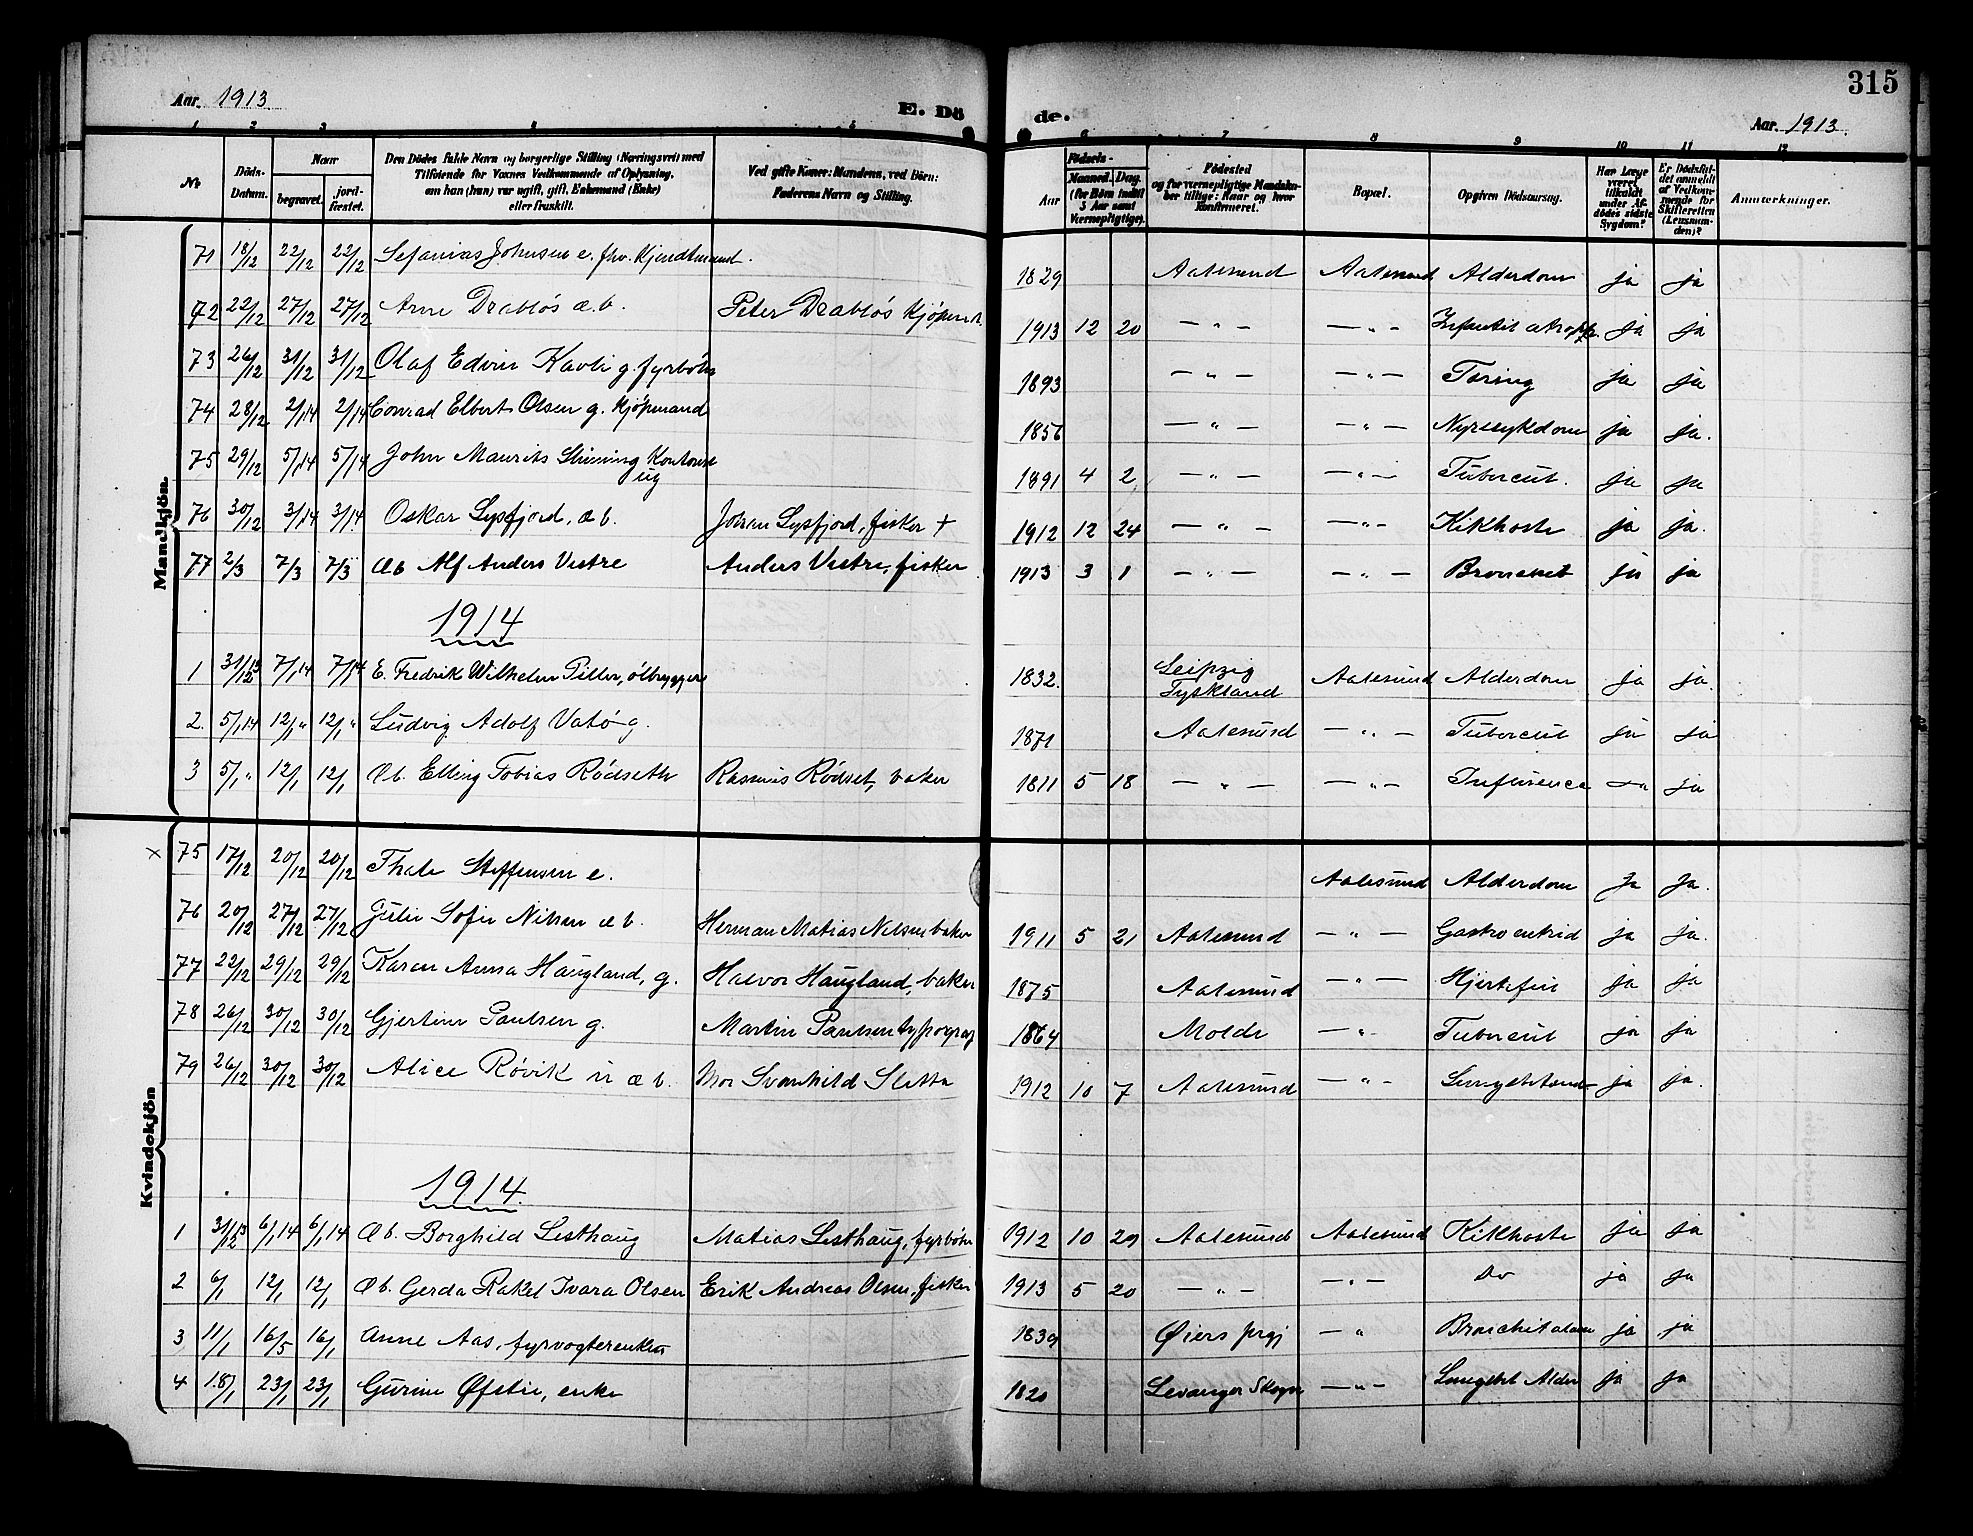 315
Aar. 1913
E. Dö de.
Aar. 1913.
1 2 3 4 5 6 7 8 9 10 11 12
No
Döds-Datum.
Naar
begravet.
jord-fæstet.
Den Dödes fulde Navn og borgerlige Stilling (Næringsvei) med
Tilføiende for Voxnes Vedkommende af Oplysning,
om han (hun) var ugift, gift, Enkemand (Enke)
eller fraskilt.
Ved gifte Koner: Mandens, ved Börn:
Faderens Navn og Stilling.
Aar
Födsels-
Maaned. Dag.
(for Börn indtil
5 Aar samt
Værnepligtige).
Födested
og for værnepligtige Mandska-
ber tillige: Naar og hvor
konfirmeret.
Bopæl.
Opgiven Dödsaarsag.
Har Læge
været
tilkaldt
under Af-
dödes sidste
Sygdom?
Er Dödsfal-
det anmeldt
af Vedkom-
mende for
Skifteretten
(Lensman-
den)?
Anmærkninger.
Mandkjön.
71 18/12 22/12 22/12 Sefanias Johnsen e. fhv. Kjendtmand. 1829 Aalesund Aalesund Alderdom ja ja
72 22/12 27/12 27/12 Arne Drabløs æ.b. Peter Drabløs Kjøpm. 1913 12 20 — " — — " — Infantil atrofi ja ja
73 26/12 31/12 31/12 Olaf Edvin Kavli g. fyrbøter 1893 — " — — " — Tæring ja ja
74 28/12 2/1 14 2/1 14 Conrad Elbert Olsen g. Kjøpmand 1856 — " — — " — Nyresykdom ja ja.
75 29/12 5/1 14 5/1 14 John Maurits Kontorist ug 1891 4 2 — " — — " — Tubercul. ja ja
76 30/12 3/1 14 3/1 14 Oskar Lysfjord, æ b. Johan Lysfjord, fisker + 1912 12 24 — " — — " — Kikhoste ja ja.
77 2/3 7/3 7/3 æb Alf Anders Vestre Anders Vestre, fisker 1913 3 1 — " — — " — Bronchit ja ja
1914
1 31/12 13 7/1 14 7/1 14 E. Fredrik Wilhelm Piller, ølbrygger 1832. Leipzig Tyskland Aalesund Alderdom ja ja.
2. 5/1 14 12/1 " 12/1 " Ludvig Adolf Vatø g. 1871 Aalesund — " — Tubercul ja ja
3 5/1 " 12/1 12/1 Æb. Elling Tobias Rødseth Rasmus Rødset, baker 1811 5 18 — " — — " — Influenca ja ja
Kvindekjön
x 75 17/12 20/12 20/12 Thale Steffensen e. Aalesund Alderdom Ja Ja.
76 20/12 27/12 27/12 Julie Sofie Nilsen æ b. Herman Matias Nilsen baker 1911 5 21 Aalesund — " — Gastroenterid ja ja.
77 22/12 29/12 29/12 Karen Anna Haugland, g. Halvor Haugland, baker 1875 Aalesund — " — Hjertefeil ja ja
78 26/12 30/12 30/12 Gjertine Paulsen g. Martin Paulsen typograf 1864 Molde — " Tubercul ja ja
79 26/12 30/12 30/12 Alice Røvik u æ b. Mor Svanhild Sletta 1912 10 7 Aalesund — " — Lungebetænd ja ja.
1914.
1 31/12 13 6/1 14 6/1 14 Æb. Borghild Lesthaug Matias Lesthaug, fyrbøter 1912 10 29 Aalesund Aalesund Kikhoste ja ja
2 6/1 12/1 12/1 Æb. Gerda Rakel Ivara Olsen Erik Andreas Olsen, fisker 1913 5 20 — " — — " — Do ja ja
3 11/1 16/5 16/1 Anne Aas, fyrvogterenke 1839 Øiers prgj — " Bronchit ja ja
4 18/1 23/1 23/1 Gurine Øfstie, enke 1820 Levanger Skogn — " — Lungebet Alder ja ja